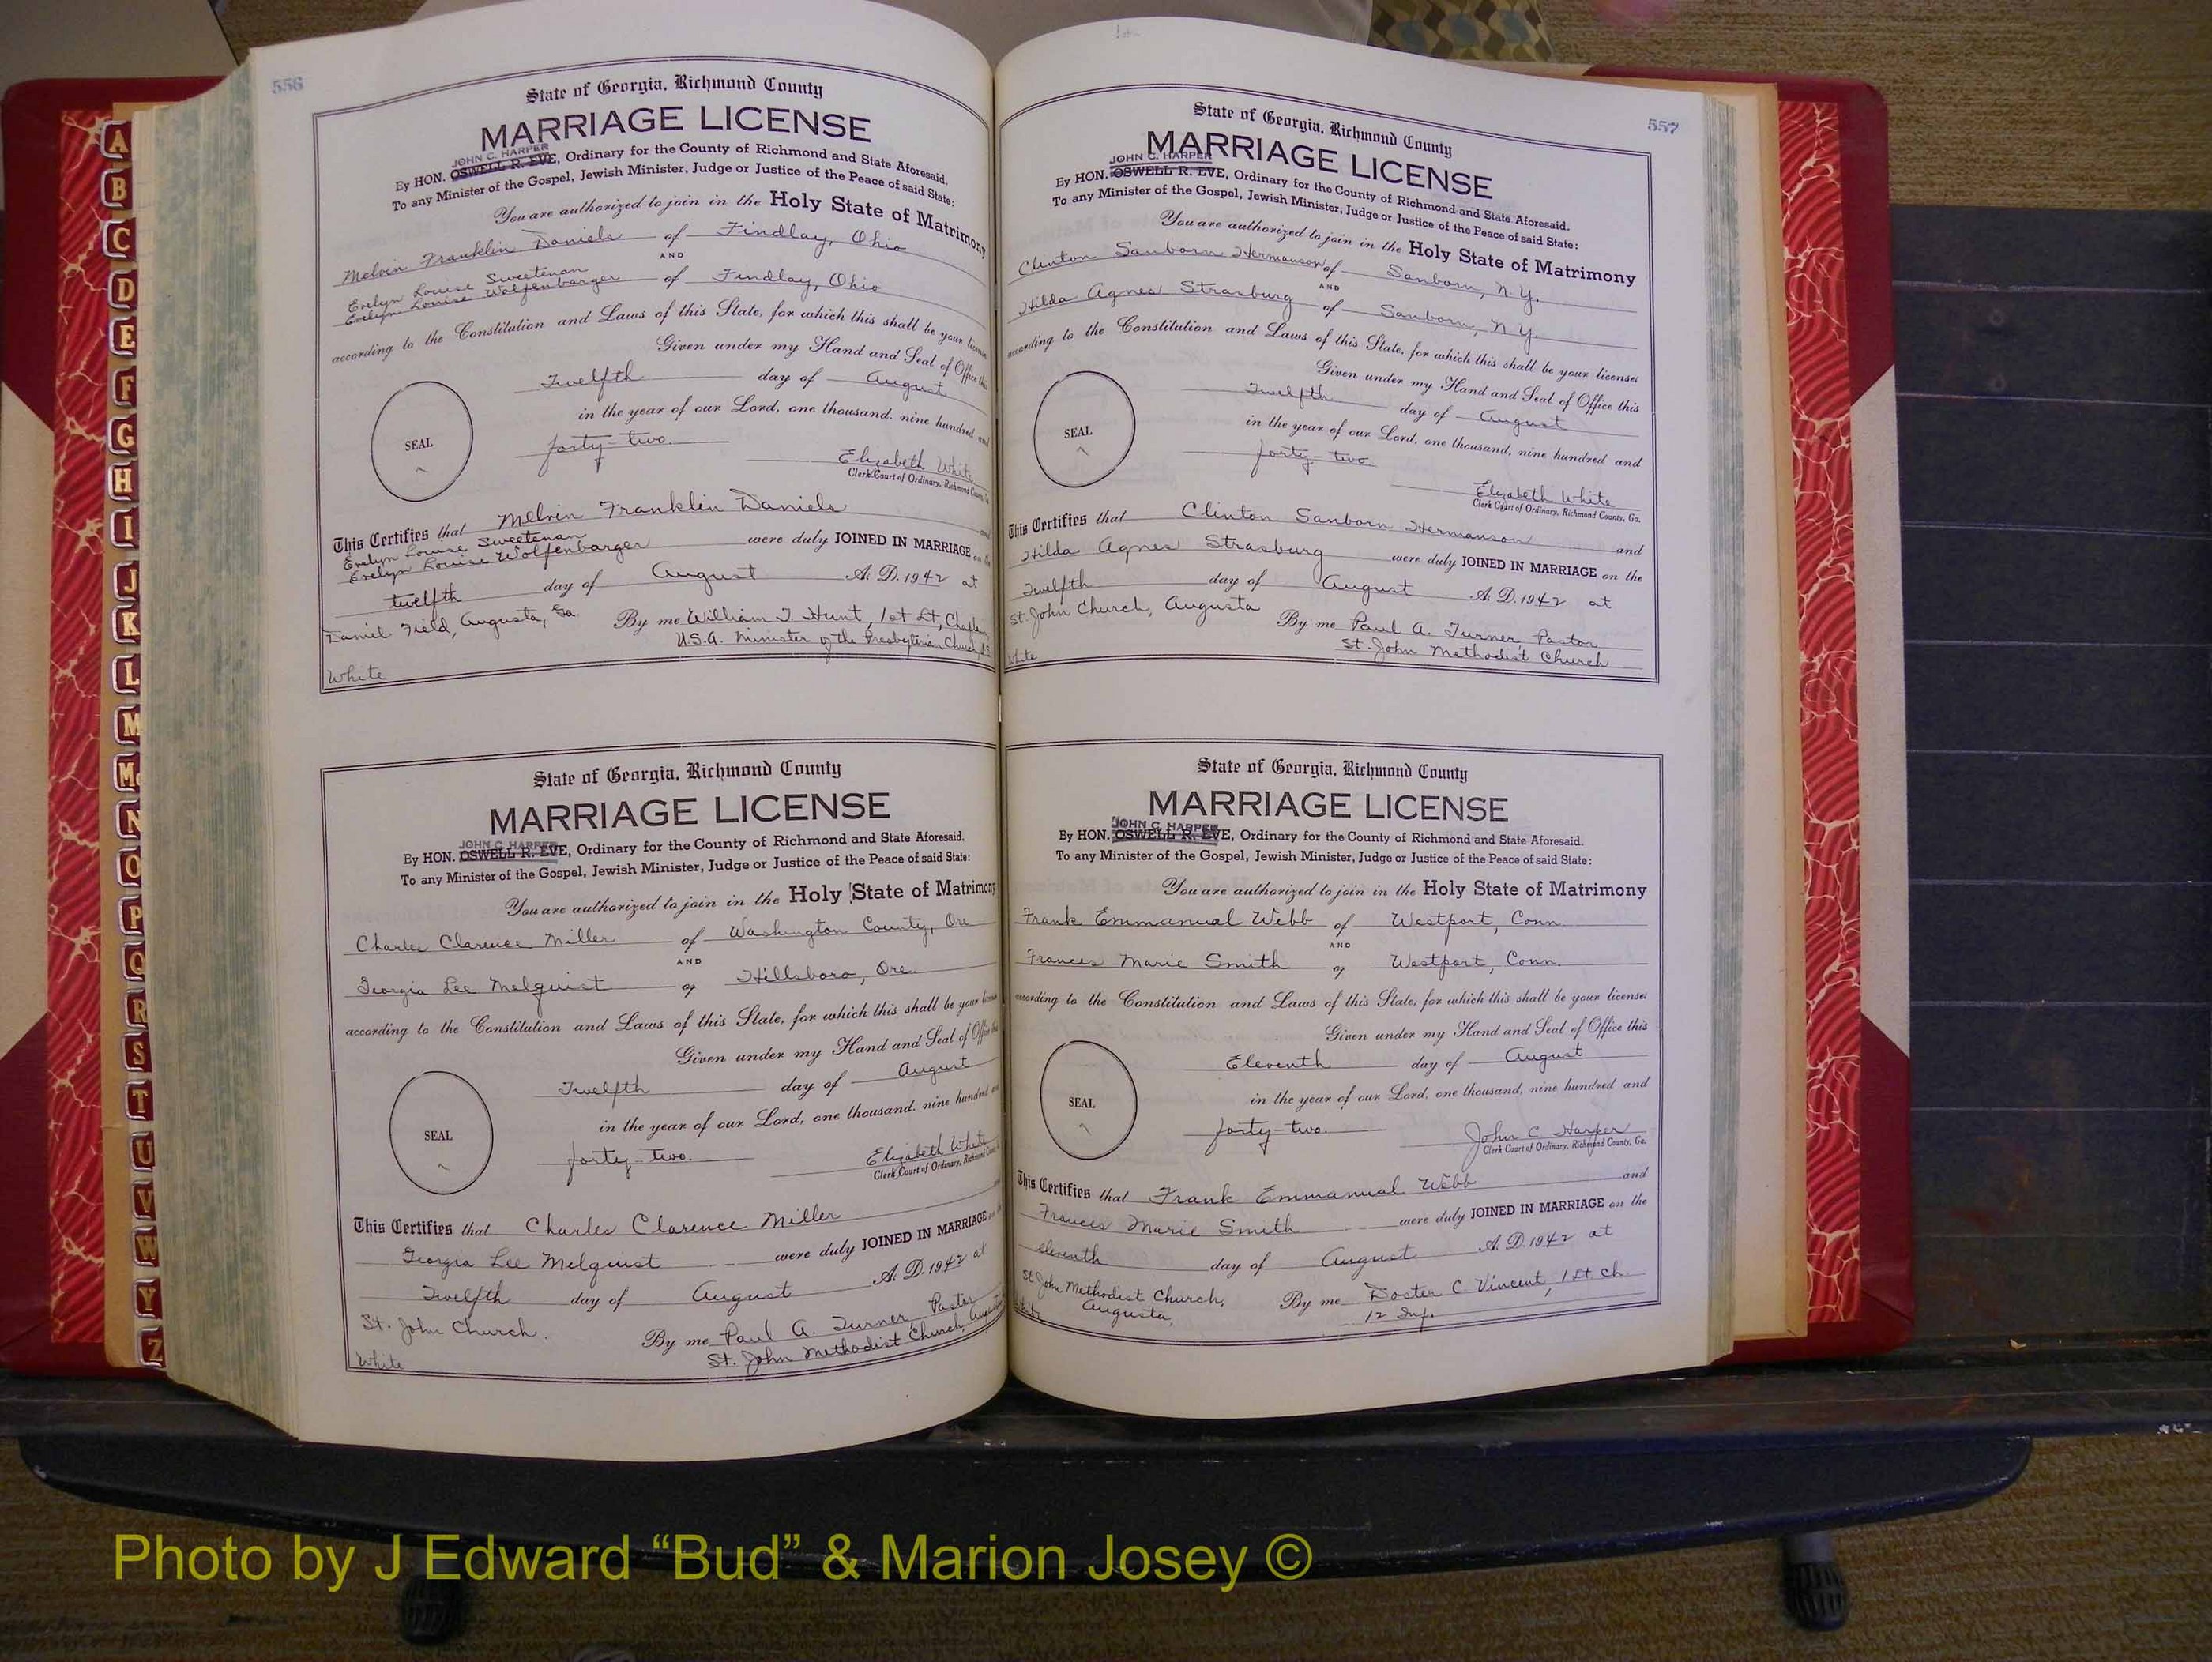 556
State of Georgia, Richmond County
MARRIAGE LICENSE
JOHN C. HARPER
By HON. OSWELL R. EVE, Ordinary for the County of Richmond and State Aforesaid.
To any Minister of the Gospel, Jewish Minister, Judge or Justice of the Peace of said State:
You are authorized to join in the Holy State of Matrimony
Melvin Franklin Daniels of Findlay, Ohio
AND
Evelyn Louise Sweetenan
Evelyn Louise Wolfenbarger of Findlay, Ohio
according to the Constitution and Laws of this State, for which this shall be your license
Given under my Hand and Seal of Office this
Twelfth day of August
in the year of our Lord, one thousand, nine hundred and
forty-two.
SEAL
Elizabeth White
Clerk Court of Ordinary, Richmond County, Ga.
This Certifies that Melvin Franklin Daniels and
Evelyn Louise Sweetenan
Evelyn Louise Wolfenbarger were duly JOINED IN MARRIAGE on the
twelfth day of August A. D. 1942 at
Daniel Field, Augusta, Ga. By me William T. Hunt, 1st Lt, Chaplain
U.S.A. Minister of the Presbyterian Church, U.S.
White
State of Georgia, Richmond County
MARRIAGE LICENSE
JOHN C. HARPER
By HON. OSWELL R. EVE, Ordinary for the County of Richmond and State Aforesaid.
To any Minister of the Gospel, Jewish Minister, Judge or Justice of the Peace of said State:
You are authorized to join in the Holy State of Matrimony
Charles Clarence Miller of Washington County, Ore
AND
Georgia Lee Melquist of Hillsboro, Ore.
according to the Constitution and Laws of this State, for which this shall be your license
Given under my Hand and Seal of Office this
Twelfth day of August
in the year of our Lord, one thousand, nine hundred and
forty-two.
SEAL
Elizabeth White
Clerk Court of Ordinary, Richmond County
This Certifies that Charles Clarence Miller
Georgia Lee Melquist were duly JOINED IN MARRIAGE on
Twelfth day of August A. D. 1942 at
St. John Church. By me Paul A. Turner, Pastor
St. John Methodist Church, Augusta
White
557
State of Georgia, Richmond County
MARRIAGE LICENSE
JOHN C. HARPER
By HON. OSWELL R. EVE, Ordinary for the County of Richmond and State Aforesaid.
To any Minister of the Gospel, Jewish Minister, Judge or Justice of the Peace of said State:
You are authorized to join in the Holy State of Matrimony
Clinton Sanborn Hermanson of Sanborn, N.Y.
AND
Hilda Agnes Strasburg of Sanborn, N.Y.
according to the Constitution and Laws of this State, for which this shall be your licenses
Given under my Hand and Seal of Office this
Twelfth day of August
in the year of our Lord, one thousand, nine hundred and
forty-two
SEAL
Elizabeth White
Clerk Court of Ordinary, Richmond County, Ga.
This Certifies that Clinton Sanborn Hermanson and
Hilda Agnes Strasburg were duly JOINED IN MARRIAGE on the
Twelfth day of August A. D. 1942 at
St. John Church, Augusta By me Paul A. Turner, Pastor
St. John Methodist Church
White
State of Georgia, Richmond County
MARRIAGE LICENSE
JOHN C. HARPER
By HON. OSWELL R. EVE, Ordinary for the County of Richmond and State Aforesaid.
To any Minister of the Gospel, Jewish Minister, Judge or Justice of the Peace of said State:
You are authorized to join in the Holy State of Matrimony
Frank Emmanual Webb of Westport, Conn.
AND
Frances Marie Smith of Westport, Conn.
according to the Constitution and Laws of this State, for which this shall be your licenses
Given under my Hand and Seal of Office this
Eleventh day of August
in the year of our Lord, one thousand, nine hundred and
forty-two.
SEAL
John C. Harper
Clerk Court of Ordinary, Richmond County, Ga.
This Certifies that Frank Emmanual Webb and
Frances Marie Smith were duly JOINED IN MARRIAGE on the
eleventh day of August A. D. 1942 at
St John Methodist Church, By me Doster C Vincent, 1 Lt Ch.
Augusta, 12 Inf.
A
B
C
D
E
F
G
H
I
J
K
L
M
Mc
N
O
P
Q
R
S
T
U
V
W
Y
Z
Photo by J Edward “Bud” & Marion Josey ©